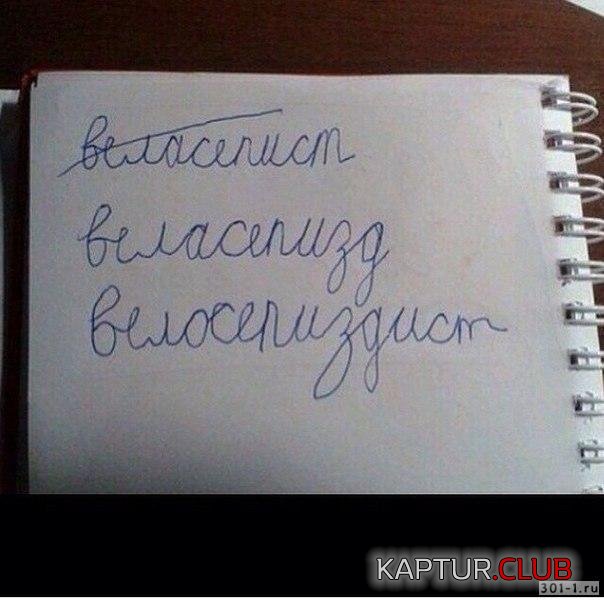 веласепист
веласепизд
велосепиздист
KAPTUR.CLUB
301-1.ru